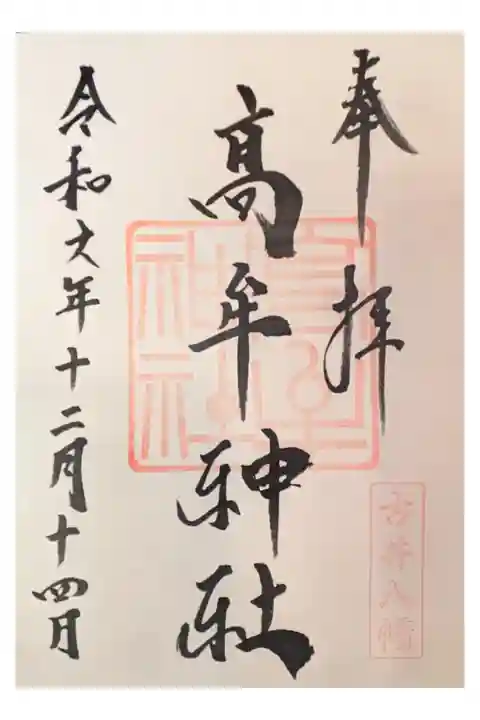 奉拝
古井八幡
高牟神社
令和六年十二月十四日